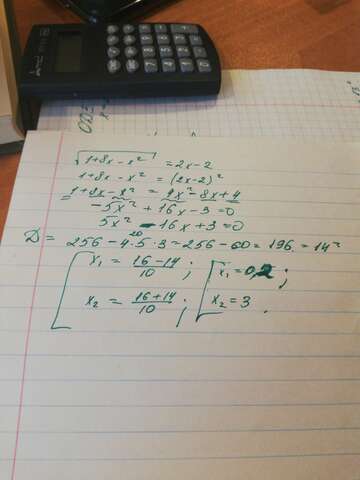 √1+8x-x² = 2x-2
1+8x-x² = (2x-2)²
1+8x-x² = 4x²-8x+4
-5x²+16x-3=0
5x²-16x+3=0
D = 256-4·5·3=256-60=196=14²
x₁ = 16-14/10; x₁=0,2;
x₂ = 16+14/10; x₂=3.